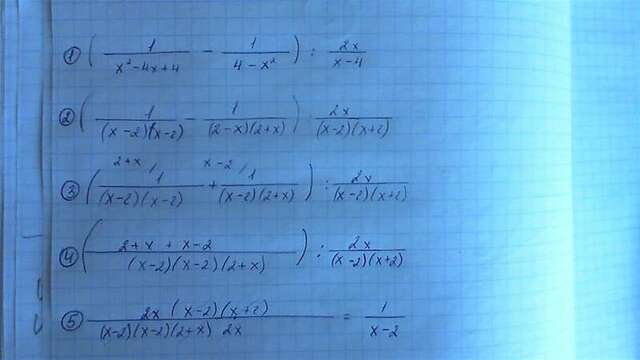 ① ( 1/(x²-4x+4) - 1/(4-x²) ) : 2x/(x-4)
② ( 1/((x-2)(x-2)) - 1/((2-x)(2+x)) ) 2x/((x-2)(x+2))
2+x/ x-2/
③ ( 1/((x-2)(x-2)) + 1/((x-2)(2+x)) ) : 2x/((x-2)(x+2))
④ ( (2+x + x-2)/((x-2)(x-2)(2+x)) ) : 2x/((x-2)(x+2))
⑤ 2x (x-2)(x+2)/((x-2)(x-2)(2+x) 2x) = 1/(x-2)